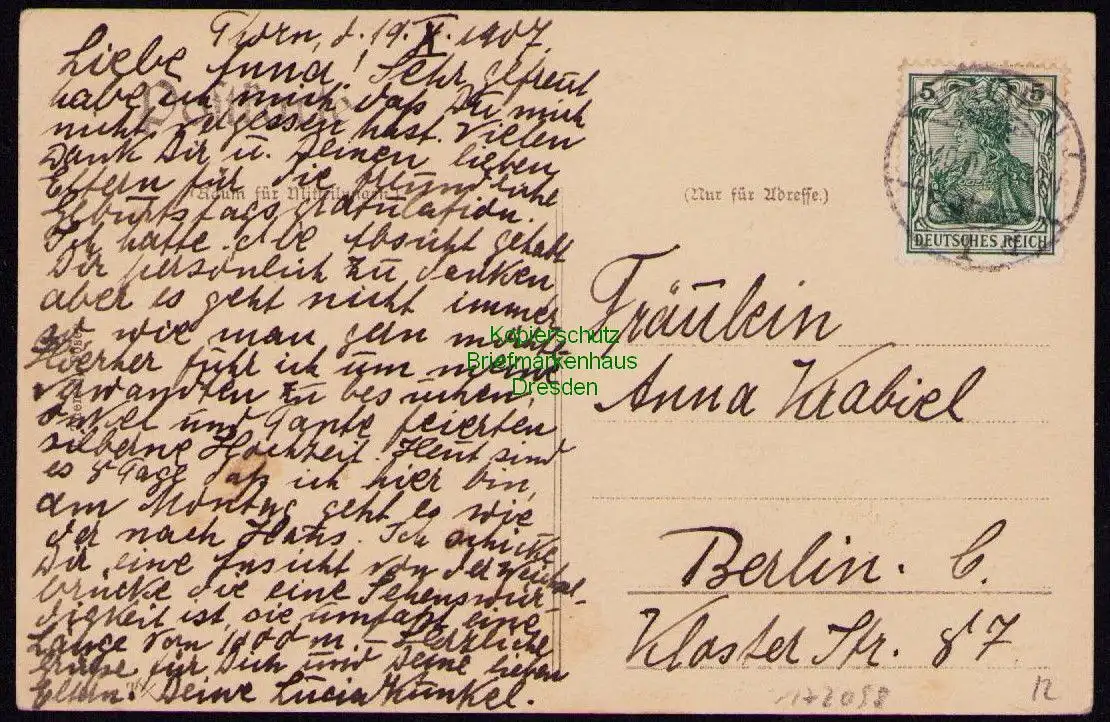 Thorn, d. 19. X. 1907.
Liebe Anna! Sehr gefreut
habe ich mich, daß Du mich
nicht vergessen hast. Vielen
Dank Dir u. Deinen lieben
Eltern für die freundliche
Geburtstagsgratulation.
Ich hatte die Absicht gehabt
Dir persönlich zu danken
aber es geht nicht immer
so wie man gern möcht
Hierher fuhr ich um meine
Verwandten zu besuchen,
Onkel und Tante feierten
silberne Hochzeit. Heut sind
es 8 Tage daß ich hier bin,
am Montag geht es wie
der nach Haus. Ich schicke
Dir eine Ansicht von der Weichsel-
brücke die eine Sehenswür-
digkeit ist, sie umfaßt eine
Länge von 1000 m. – Herzliche
Grüße für Dich und Deine lieben
Eltern. Deine Lucia Kunkel.
Postkarte
(Raum für Mitteilungen.)
(Nur für Adresse.)
5 5
DEUTSCHES REICH
Fräulein
Anna Krabiel
Berlin. C.
Kloster Str. 87
172098
12
Kopierschutz
Briefmarkenhaus
Dresden